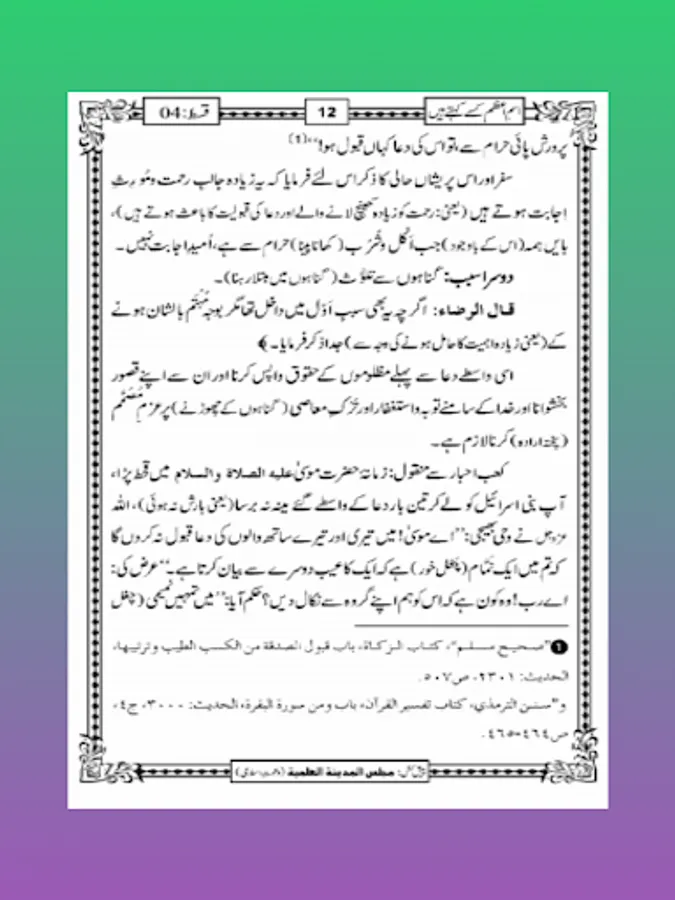 اسمِ اعظم کسے کہتے ہیں
12
قسط:04
پرورش پائی حرام سے، تو اس کی دعا کہاں قبول ہو!''(1)
سفر اور اس پریشاں حالی کا ذکر اس لئے فرمایا کہ یہ زیادہ جالبِ رحمت و مُورِثِ
اِجابت ہوتے ہیں (یعنی: رحمت کو زیادہ کھینچ لانے والے اور دعا کی قبولیت کا باعث ہوتے ہیں)،
بایں ہمہ (اس کے باوجود) جب اَکل و شُرْب (کھانا پینا) حرام سے ہے، اُمیدِ اجابت نہیں۔
دوسرا سبب: گناہوں سے تلوُّث (گناہوں میں مبتلا رہنا)۔
قال الرضاء: اگرچہ یہ بھی سببِ اَوّل میں داخل تھا مگر بوجہ مُہْتَم بالشان ہونے
کے (یعنی زیادہ اہمیت کا حامل ہونے کی وجہ سے) جدا ذکر فرمایا۔﴾
اسی واسطے دعا سے پہلے مظلوموں کے حقوق واپس کرنا اور ان سے اپنے قصور
بخشوانا اور خدا کے سامنے توبہ و استغفار اور تَرْکِ معاصی (گناہوں کے چھوڑنے) پر عزمِ مُصَمَّم
(پختہ ارادہ) کرنا لازم ہے۔
کعب احبار سے منقول: زمانۂ حضرت موسیٰ علیہ الصلاۃ والسلام میں قحط پڑا،
آپ بنی اسرائیل کو لے کر تین بار دعا کے واسطے گئے مینہ نہ برسا (یعنی بارش نہ ہوئی)، اللہ
عزوجل نے وحی بھیجی: ''اے موسیٰ! میں تیری اور تیرے ساتھ والوں کی دعا قبول نہ کروں گا
کہ تم میں ایک نَمَّام (چغل خور) ہے کہ ایک کا عیب دوسرے سے بیان کرتا ہے۔'' عرض کی:
اے رب! وہ کون ہے کہ اس کو ہم اپنے گروہ سے نکال دیں؟ حکم آیا: ''میں تمہیں نمیمی (چغل
1 ''صحيح مسلم''، كتاب الزكاة، باب قبول الصدقة من الكسب الطيب وترتيبها،
الحديث: ٢٣٠١، ص٥٠٧.
و''سنن الترمذي، كتاب تفسير القرآن، باب ومن سورة البقرة، الحديث: ٣٠٠٠، ج٤،
ص٤٦٤-٤٦٥.
پیش کش: مجلس المدينة العلمية (دعوتِ اسلامی)